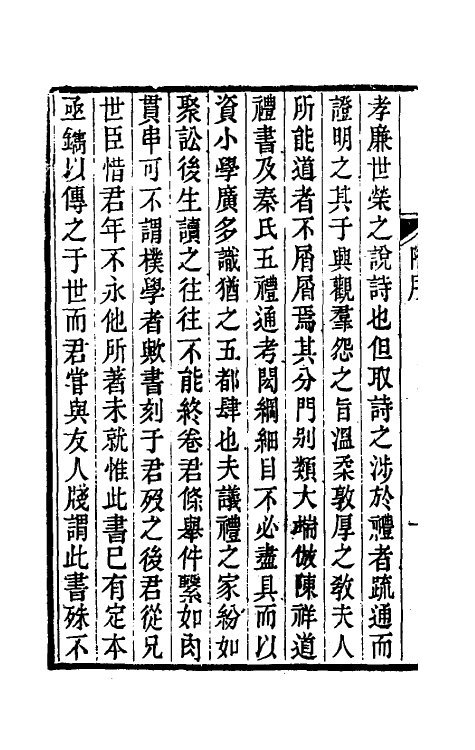 孝廉世榮之說詩也但取詩之涉於禮者疏通而
證明之其于興觀羣怨之旨溫柔敦厚之敎夫人
所能道者不屑屑焉其分門别類大端倣陳祥道
禮書及秦氏五禮通考閎綱細目不必盡具而以
資小學廣多識猶之五都肆也夫議禮之家紛如
聚訟後生讀之往往不能終卷君條舉件繫如肉
貫串可不謂樸學者歟書刻于君歿之後君從兄
世臣惜君年不永他所著未就惟此書已有定本
亟鐫以傳之于世而君嘗與友人牋謂此書殊不